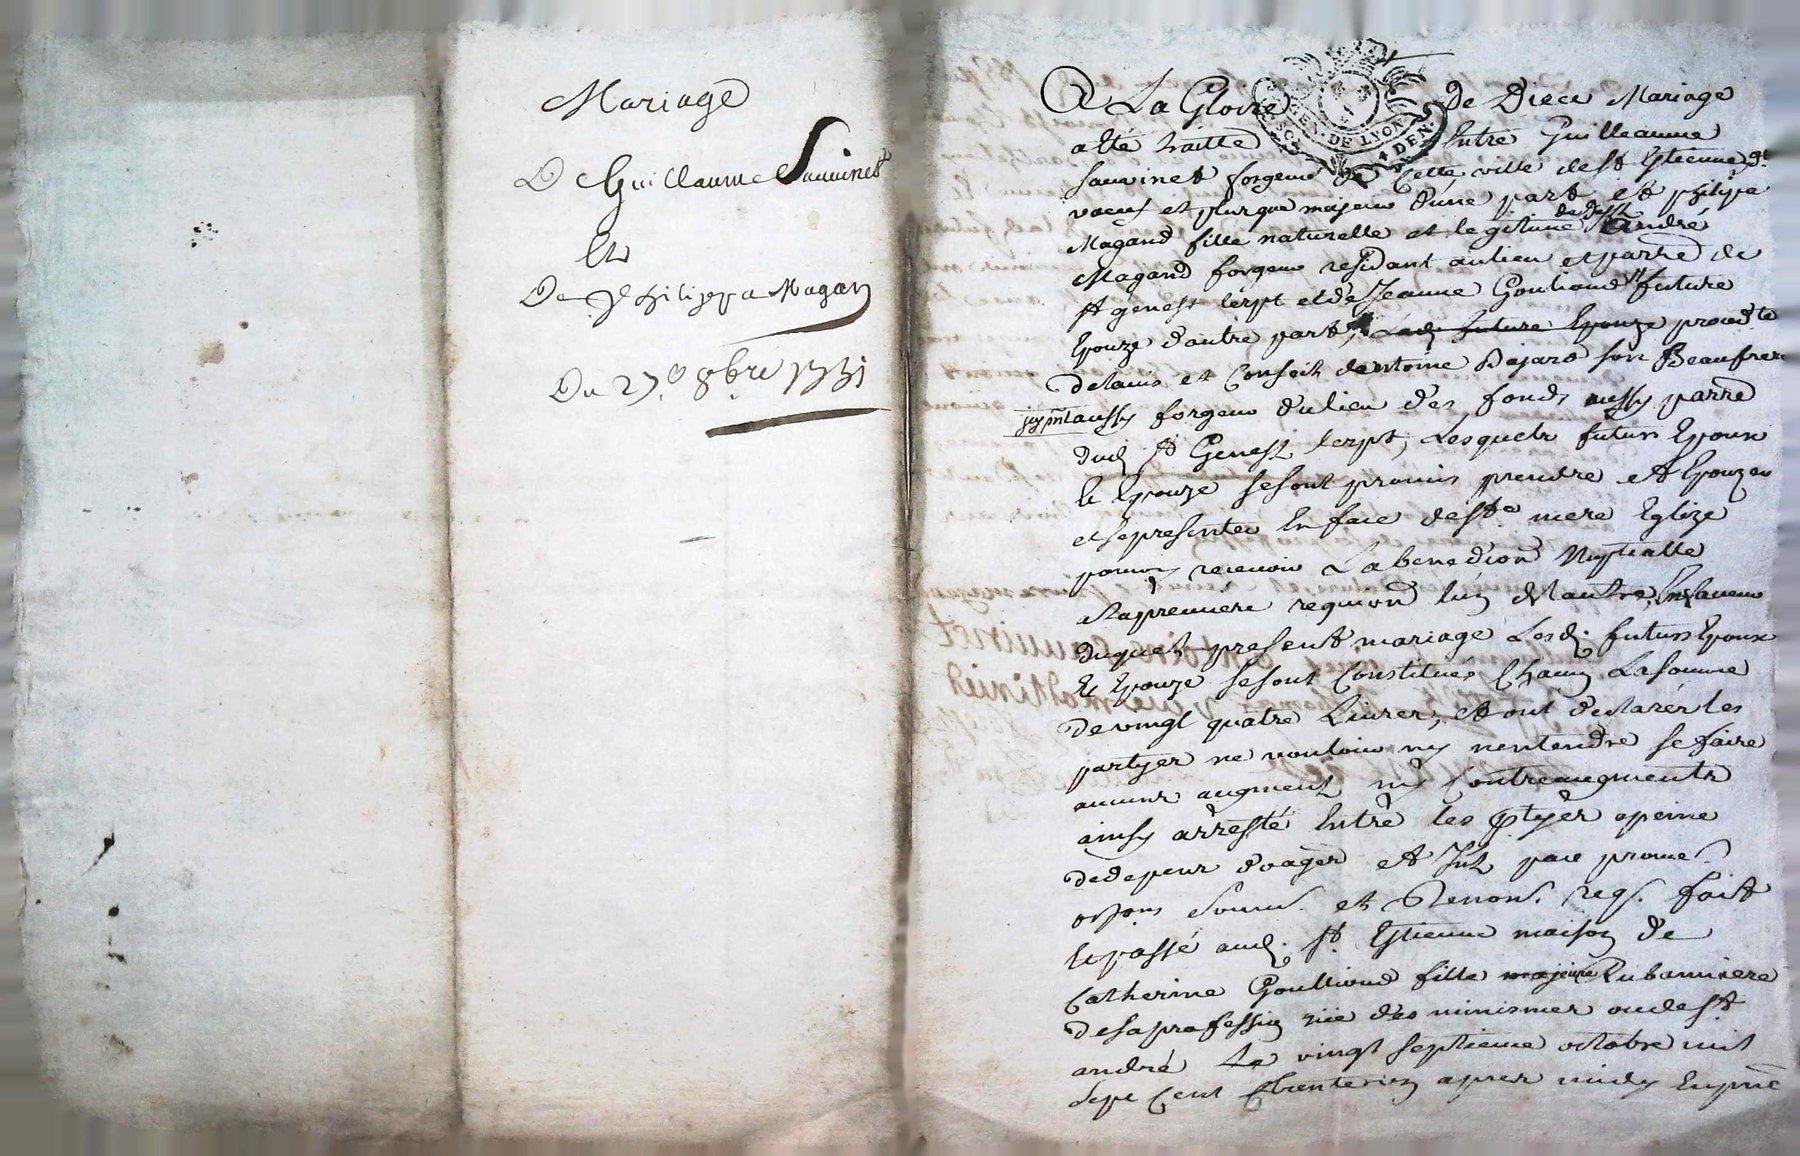 Mariage
De Guillaume Sauvinet
Et
De Philippa Magan
Du 27e 8bre 1731
GEN. DE LYON
4 DEN.
A La Gloire de Dieu Mariage
a été traitté Entre Guilleaume
Sauvinet forgeur de Cette ville de St Etienne
voeuf et plus que majeur d'une part et philippa
Magand fille naturelle et legitime de deft André
Magand forgeur residant au lieu et parre de
St genest lerpt et de Jeanne Goutiond future
Epouze d'autre part, Lad. future Epouze proced.te
de lavis et Conseil dantoine Bajard son Beaufrere
icy pnt aussy forgeur du lieu des fonds aussy parre
dud. St Genest lerpt, Lesquels futurs Epoux
Et Epouze se sont promis prendre et Epouzer
et se presenter En face de Ste mere Eglize
pour y recevoir La benediction Nuptialle
a la premiere requion lun de lautre, En faveur
duquel present mariage Lesd. futurs Epoux
Et Epouze se sont Constitues Chacun La somme
de vingt quatre Livres, et ont declarér les
partyes ne vouloir ny nentendre se faire
aucuns augment ny Contreaugments
ainsy arresté Entre les ptyes a peine
de depens domages et Int. par prome.
objons soum. et Renon. reqs. fait
et passé aud. St Etienne maison de
Catherine Goutiond fille majeure Rubanniere
de sa profession rue des minismes ou de St
andré Le vingt septieme octobre mil
sept Cent trente un apres midy En pnce